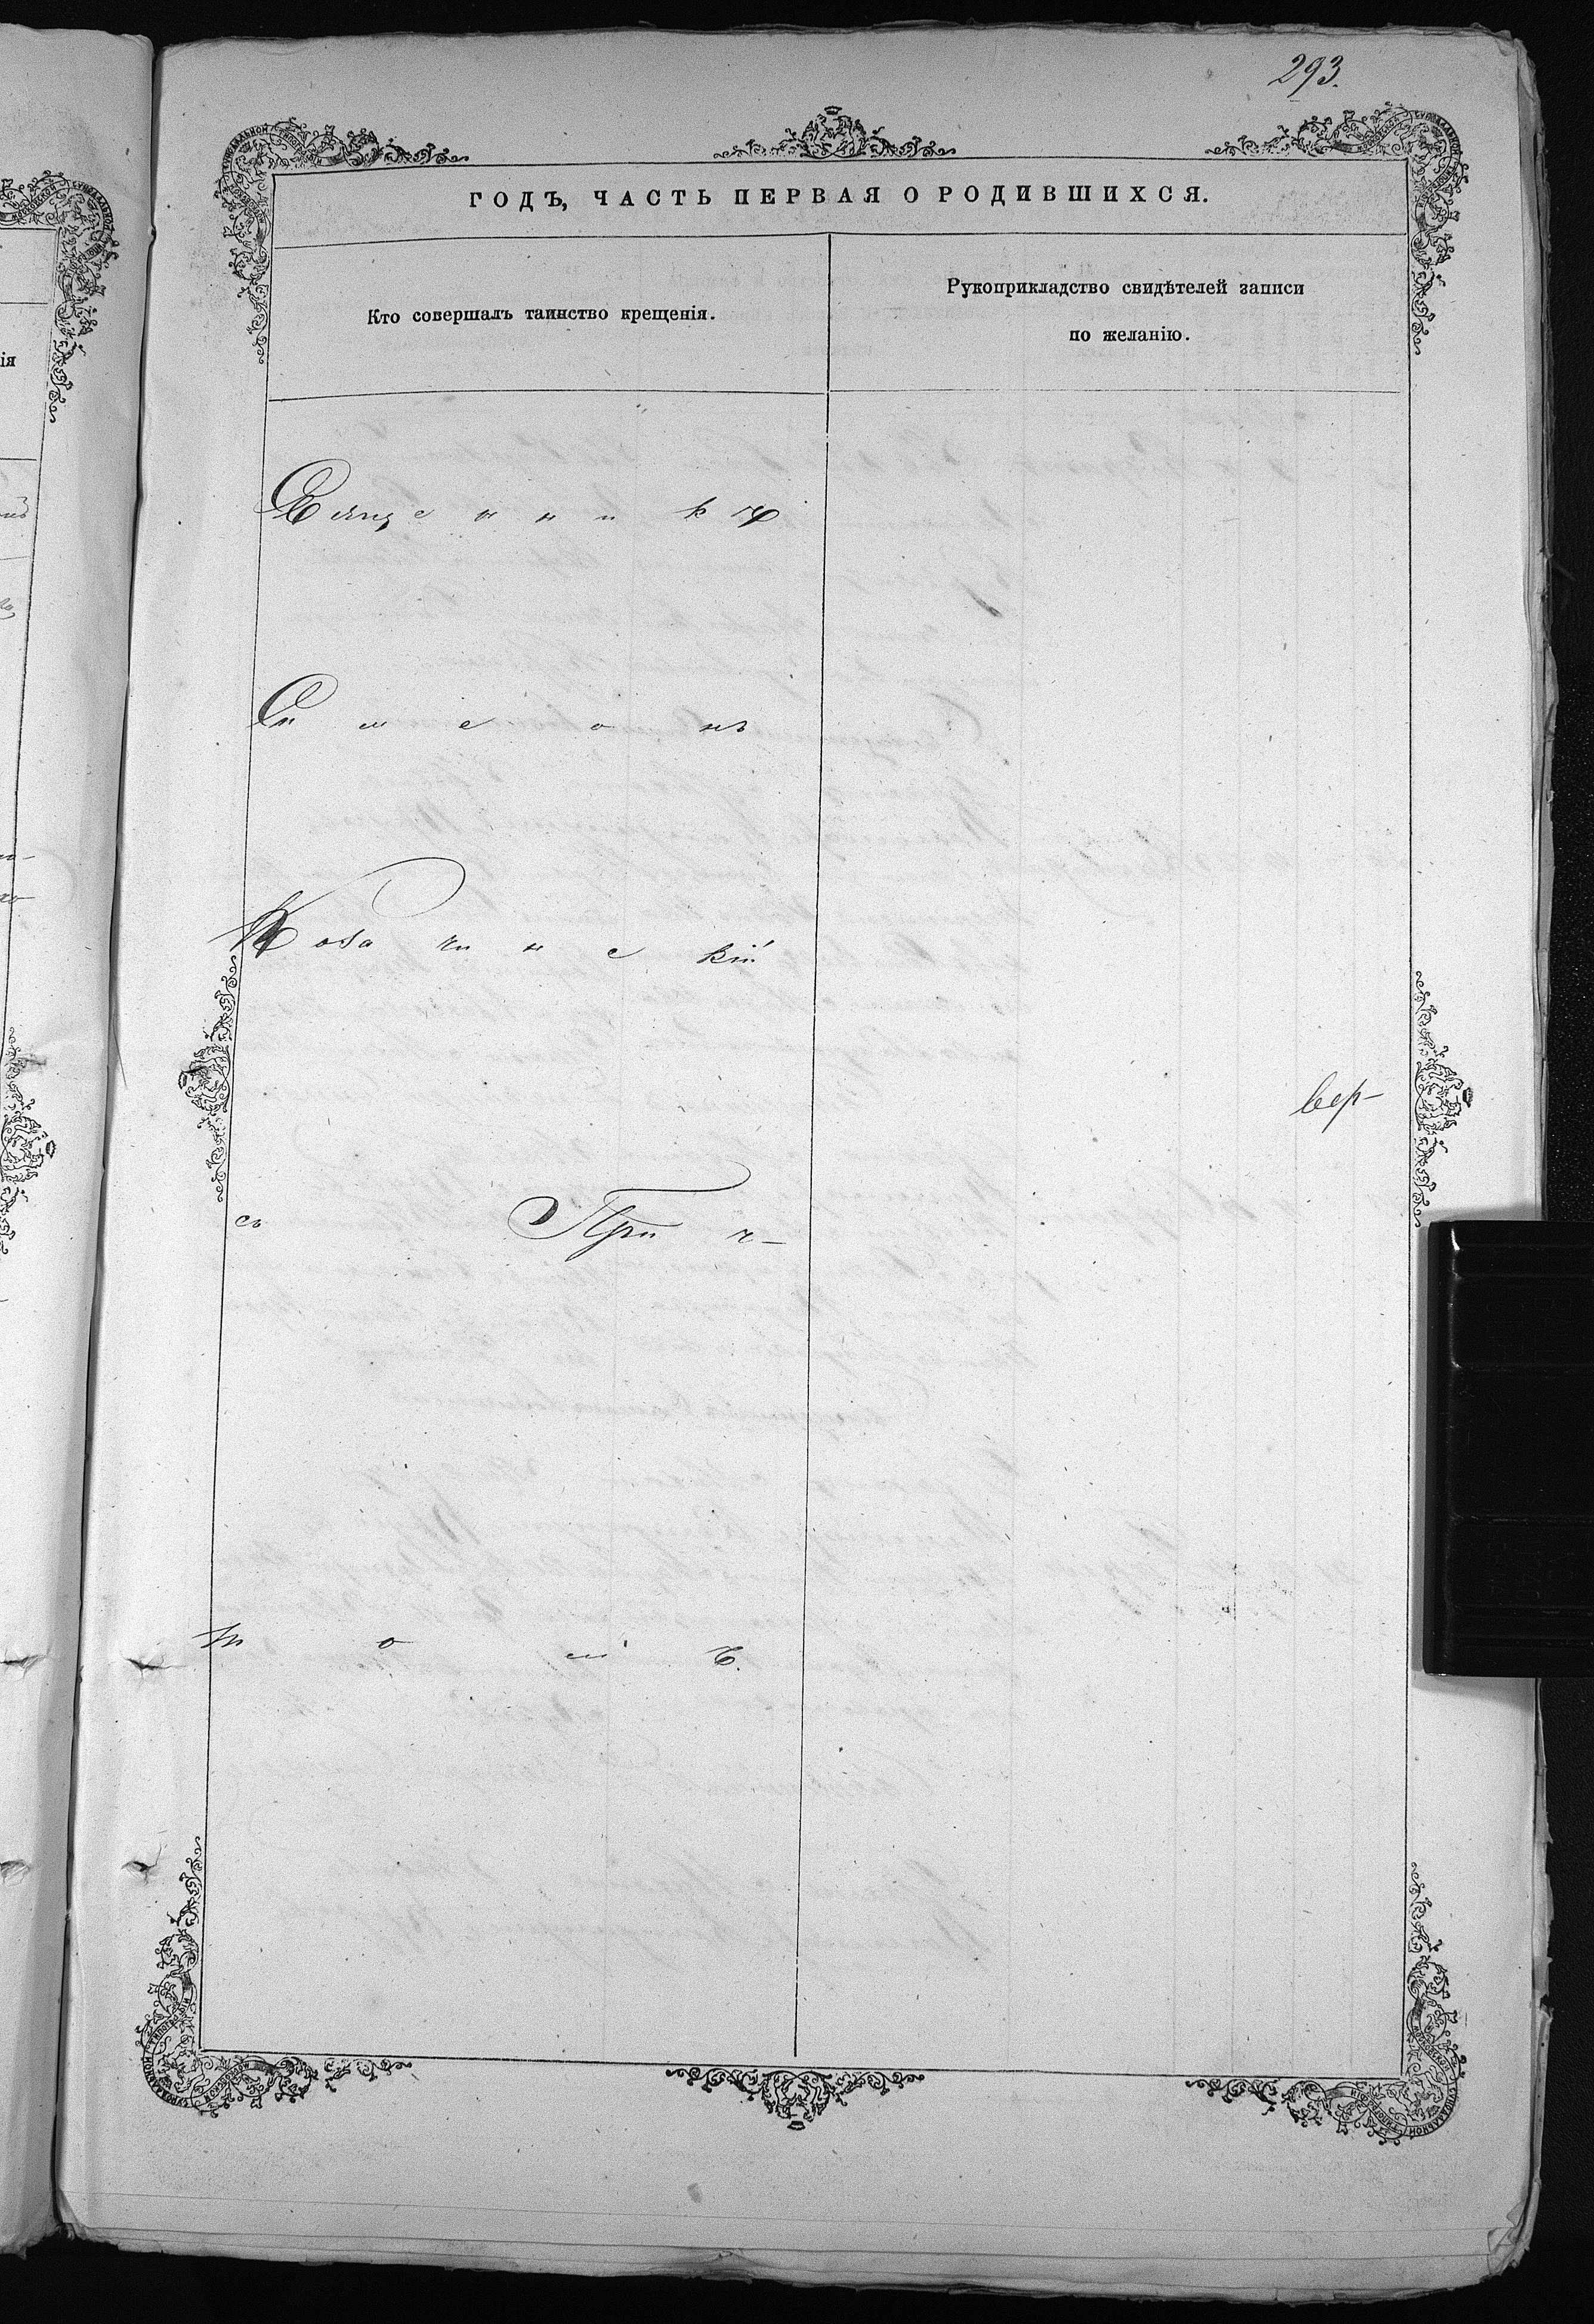 293.
ГОДЪ, ЧАСТЬ ПЕРВАЯ О РОДИВШИХСЯ.
Кто совершалъ таинство крещенія.
Рукоприкладство свидѣтелей записи
по желанію.
Священникъ
Симеонъ
вер-
съ Прич-
томъ.